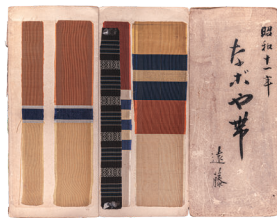 昭和十一年
なごや帯
遠藤